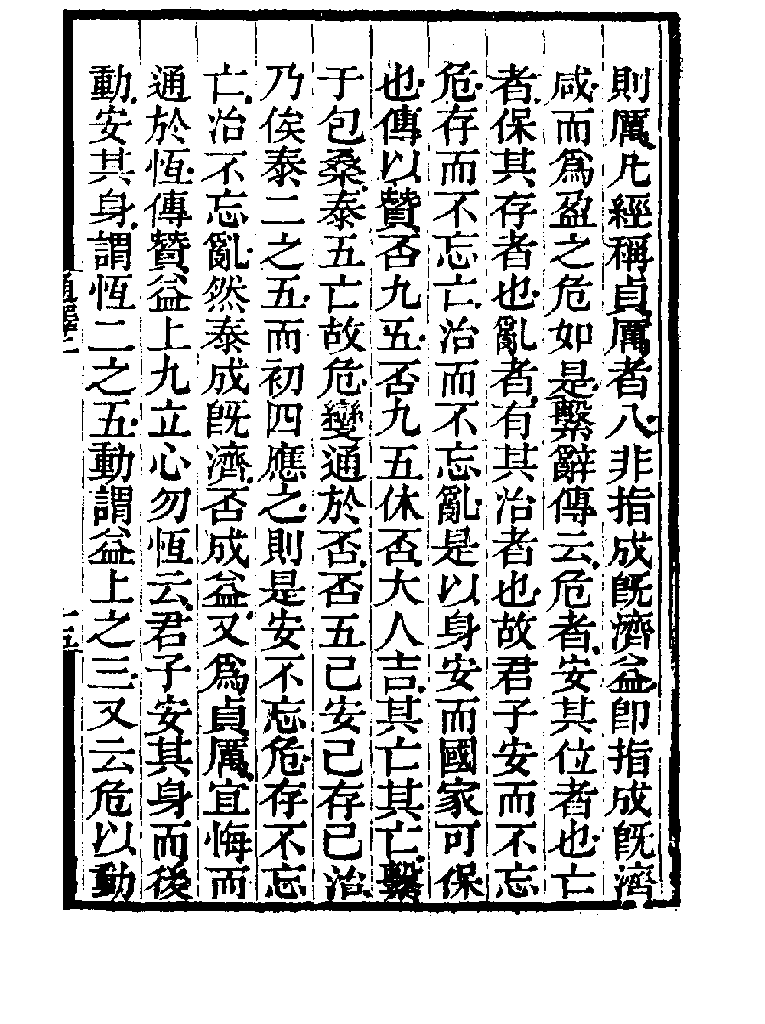 則厲凡經稱貞厲者八非指成旣濟益卽指成旣濟
咸而爲盈之危如是繫辭傳云危者安其位者也亡
者保其存者也亂者有其治者也故君子安而不忘
危存而不忘亡治而不忘亂是以身安而國家可保
也傳以贊否九五否九五休否大人吉其亡其亡繫
于包桑泰五亡故危變通於否否五己安己存己治
乃俟泰二之五而初四應之則是安不忘危存不忘
亡治不忘亂然泰成旣濟否成益又爲貞厲宜悔而
通於恆傳贊益上九立心勿恆云君子安其身而後
動安其身謂恆二之五動謂益上之三又云危以動